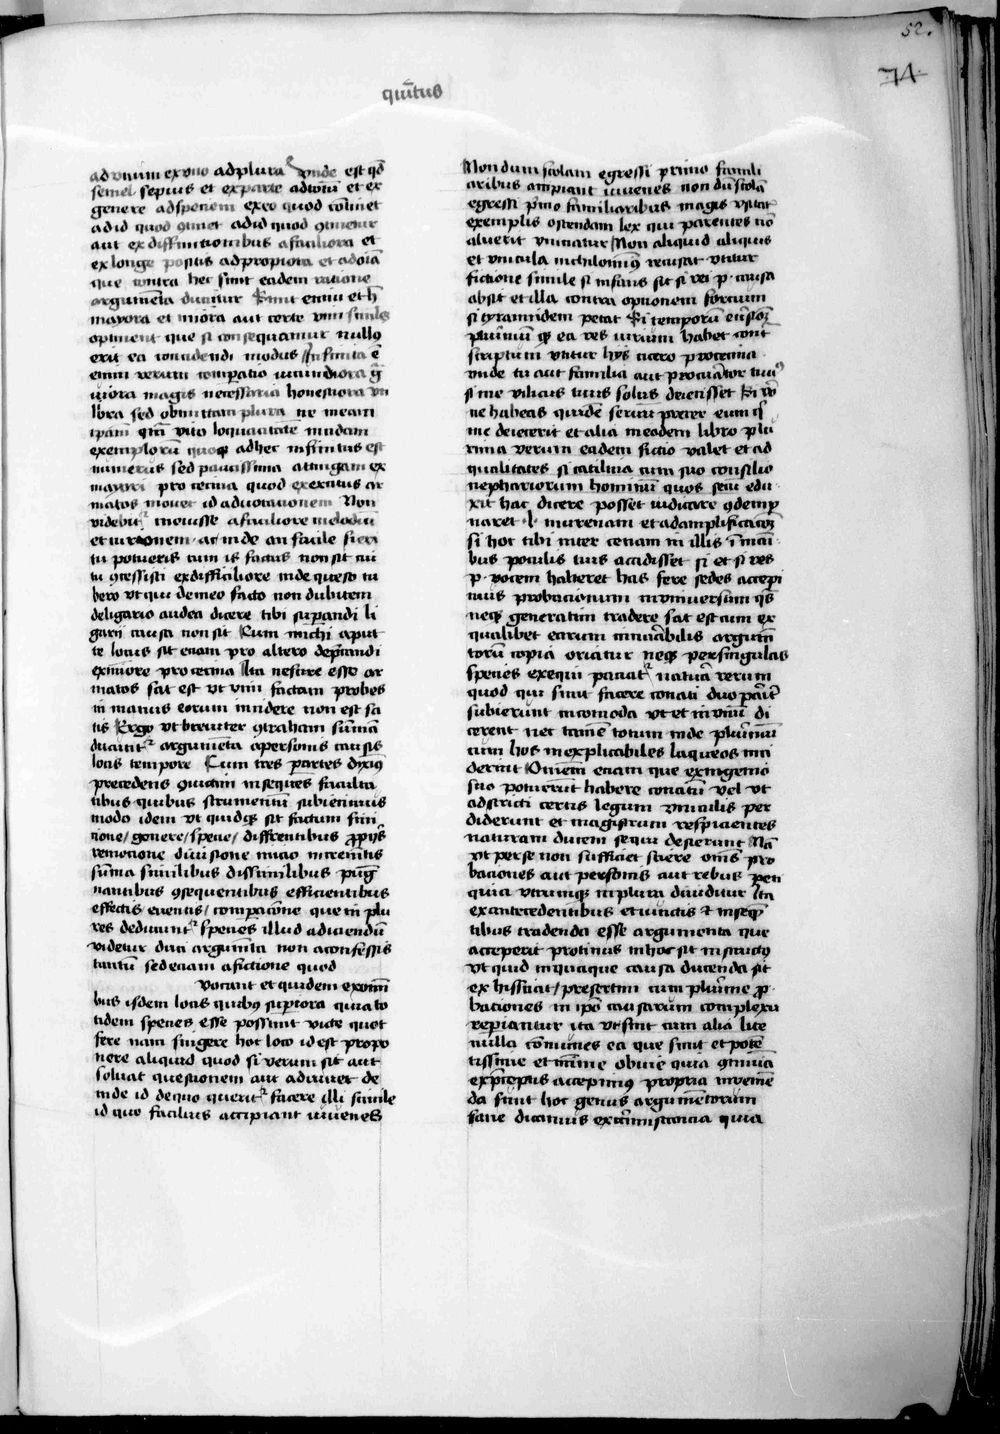 52.
74
quītus
ad vnum ex vno ad plura vnde est qd
semel sepius et ex parte ad totū et ex
genere ad speciem ex eo quod cōtinet
ad id quod ꝯtinet ad id quod ꝯtinetur
aut ex difficilioribus a faciliora et
ex longe positis ad propiora et ad oīa
que contra hec sunt eadem ratione
argumēta ducūtur Sunt enim et h̄
mayora et miora aut certe vim similē
optinent que si consequamur nullꝯ
erit ea concidendi modus Infinita ē
enim rerum comparatio iucundiora gͣ
uiora magis necessaria honestiora vti
liora sed obmittam plura ne in eam
ipām quā vito loquacitatem incidam
exemplorū quoqꝫ ad hec infinitus est
numerus sed paucissima attingam ex
mayori pro cecina quod exercitus ar
matos mouet id aduocationem Non
videbitᷣ mouisse a faciliore in clodiū
et curionem ac inde an facile fieri
tu potueris cum is factus non sit cui
tu ꝯcessisti ex difficiliore inde queso tu
bero vt qui de meo facto non dubitem
de ligario audea dicere tibi sup̄andi li
garii causa non sit Cum michi aput
te locus sit etiam pro altero dep̄candi
ex miore pro cecina Ita ne scire esse ar
matos sat est vt vim factam probes
in manus eorum incidere non est sa
tis Ergo vt breuiter ꝯtraham sūmā
ducūntᷣ argumēta a personis causis
locis tempore Cum tres p̄artes dixiꝯ
precedens ꝯiūctum insequens faculta
tibus quibus instrumentū subiecimus
modo idem vt quidqꝫ sit factum fini
tione/ genere/ specie/ differentibus p̄prijs
remotione diuisione inicio incremētis
sūma similibus dissimilibus pug
nantibus ꝯsequentibus efficientibus
effectis/ euentis/ comparacōne que in plu
res deducuntᷣ species illud adiciendū
videtur duci argumēta non a confessis
tantū sed eciam a fictione quod
vocant et quidem ex omni
bus isdem locis quibꝯ sup̄iora quia to
tidem species esse possunt ficte quot
fere nam fingere hoc loco id est propo
nere aliquid quod si verum sit aut
soluat questionem aut adiuuet de
inde id de quo queritᷣ facere illi simile
id quo facilius accipiant iuuenes
Nondum scolam egressi primo famili
aribus accipiant iuuenes non dū scolā
egressi p̄mo familiaribus magis vsitat
exemplis ostendam lex qui parentes nō
aluerit vinciatur Non aliquid aliquis
et vincula nichilominꝯ recusat vtitur
fictione simile si infans sit si rei p. causa
absit et illa contra optionem fortium
si tyrannidem petat Si temporū eūsioꝝ
plurimū qꝫ ea res virium habet cont
scriptum vtitur hijs cicero pro cecina
vnde tu aut familia aut procurator tuuꝯ
si me vilicus tuus solus deiecisset Si v̄o
ne habeas quidē seruū preter eum q̄
me deiecerit et alia in eadem libro plu
rima verum eadem fictio valet et ad
qualitates si catilina cum suo consilio
nephariorum hominū quos secū edu
xit hac dicere posset iudicare ꝯdemp
naret .l. murenam et ad amplificacōꝫ
si hoc tibi inter cenam in illis īmāi
bus poculis tuis accidisset si et si res
p. vocem haberet has fere sedes accepi
mus probacionum in vniuersum qs
neqꝫ generatim tradere sat est cum ex
qualibet earum innūabilis argum̄
torū copia oriatur neqꝫ per singulas
species exequi paciatᷣ natura rerum
quod qui sunt facere conati duo pāit
subierunt incomoda vt et nimiū di
cerent nec tamē totum inde plurimi
cum hos inexplicabiles laqueos inci
derint Omnem etiam que ex ingenio
suo potuerūt habere conatū vel vt
adstricti certis legum vinculis per
diderunt et magistrum respicientes
naturam ducem sequi desierunt Nā
vt per se non sufficiet scire om̄s pro
baciones aut personis aut rebus peti
quia vtrumqꝫ in plura diuiditur Ita
ex antecedentibus et iunctis & inseqn̄
tibus tradenda esse argumenta que
acceperit protinus in hoc sit instructꝯ
vt quid in quaque causa ducenda sit
ex his sciat/ presertim cum plurime p̄
baciones in ipō causarum complexu
reperiantur ita vt sint cum alia lite
nulla cōmunes ea que sunt et potē
tissime et mīme obuie quia ꝯmūia
ex p̄ceptis accepimꝯ propria inuenē
da sunt hoc genus argumentorum
sane dicamus ex circūmstancia quia